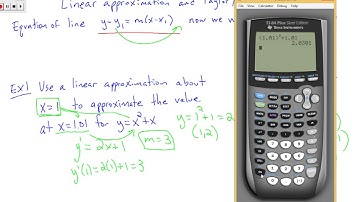 Linear approximation and Taylor
Equation of line y-y₁=m(x-x₁) now we
Ex1 Use a linear approximation about
x=1 to approximate the value
at x=1.01 for y=x²+x
y=1²+1=2
(1,2)
y' = 2x+1
m=3
y'(1)=2(1)+1=3
TI-84 Plus Silver Edition
Texas Instruments
(1.01)²+1.01
2.0301